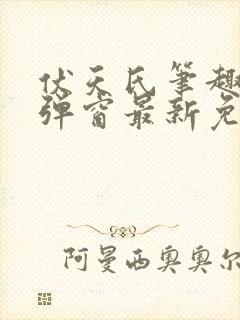 伏天氏笔趣
弹窗最新免
阿曼西奥奥尔